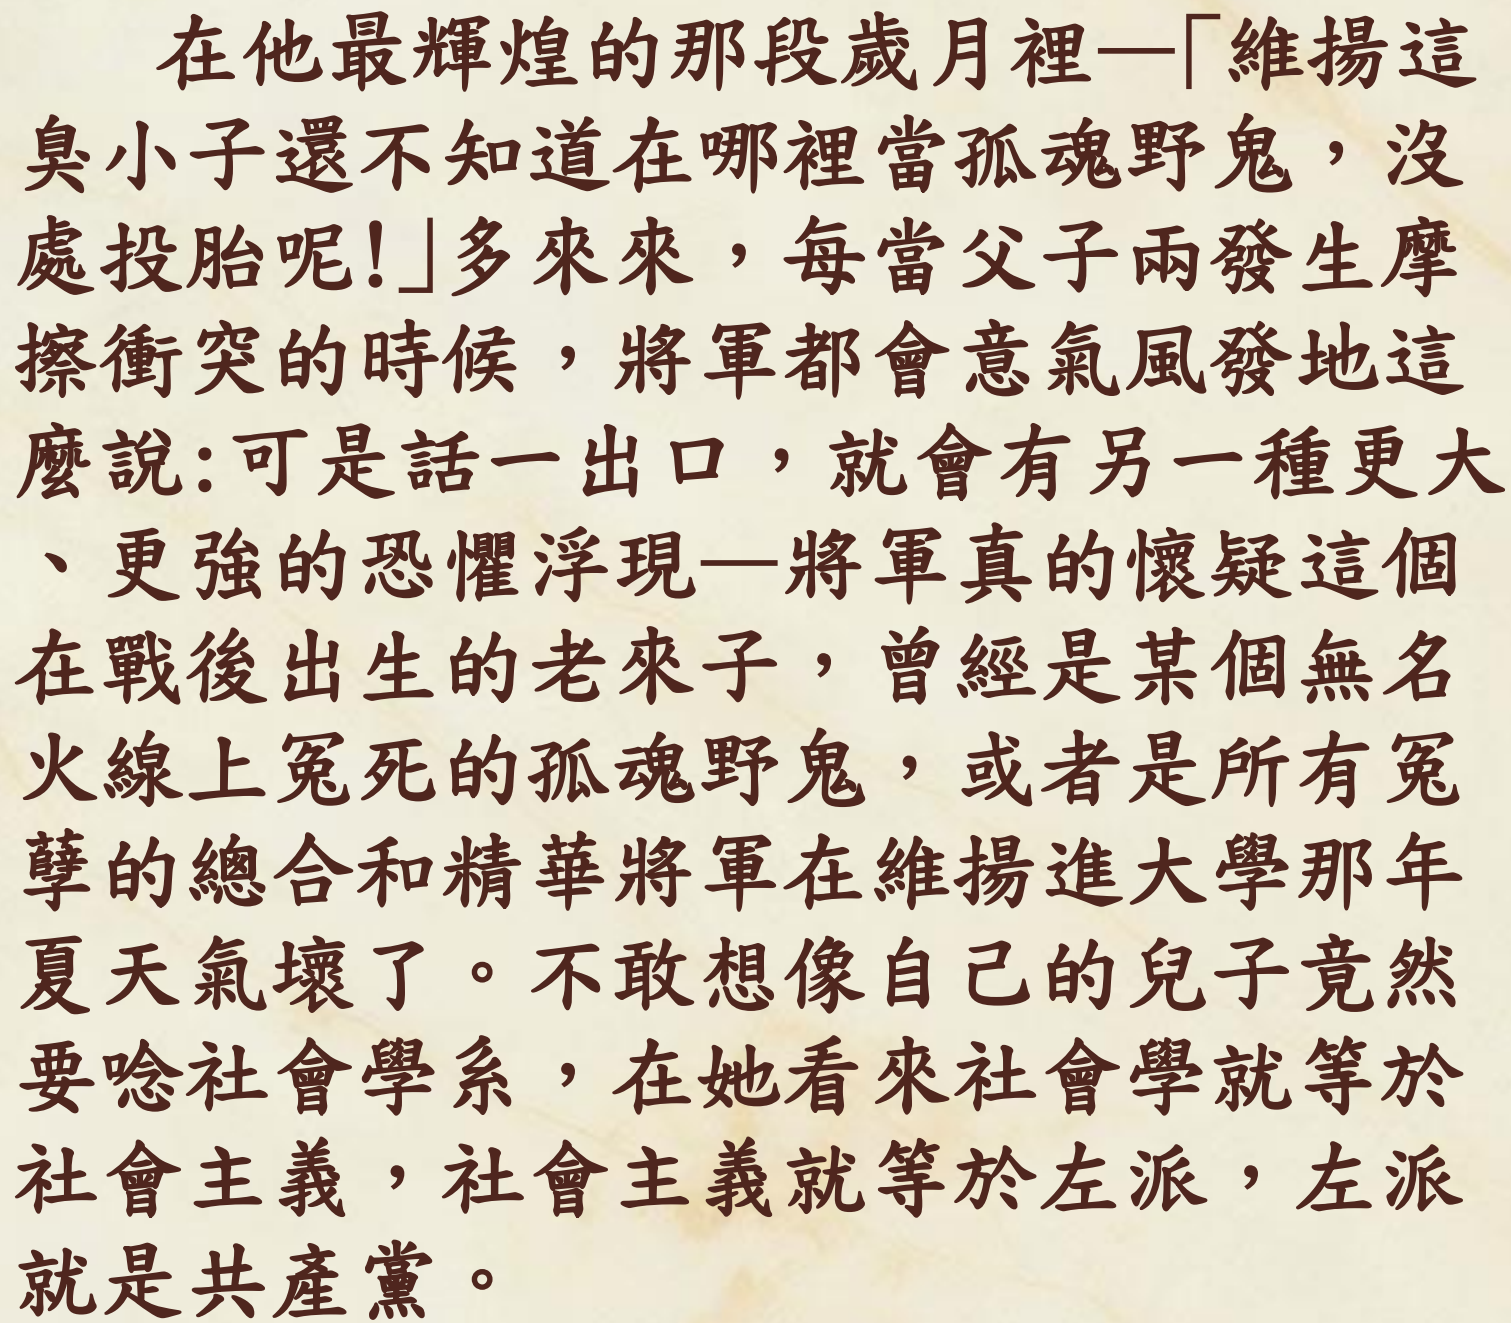 在他最輝煌的那段歲月裡—「維揚這
臭小子還不知道在哪裡當孤魂野鬼，沒
處投胎呢!」多來來，每當父子兩發生摩
擦衝突的時候，將軍都會意氣風發地這
麼說:可是話一出口，就會有另一種更大
、更強的恐懼浮現—將軍真的懷疑這個
在戰後出生的老來子，曾經是某個無名
火線上冤死的孤魂野鬼，或者是所有冤
孽的總合和精華將軍在維揚進大學那年
夏天氣壞了。不敢想像自己的兒子竟然
要唸社會學系，在她看來社會學就等於
社會主義，社會主義就等於左派，左派
就是共產黨。